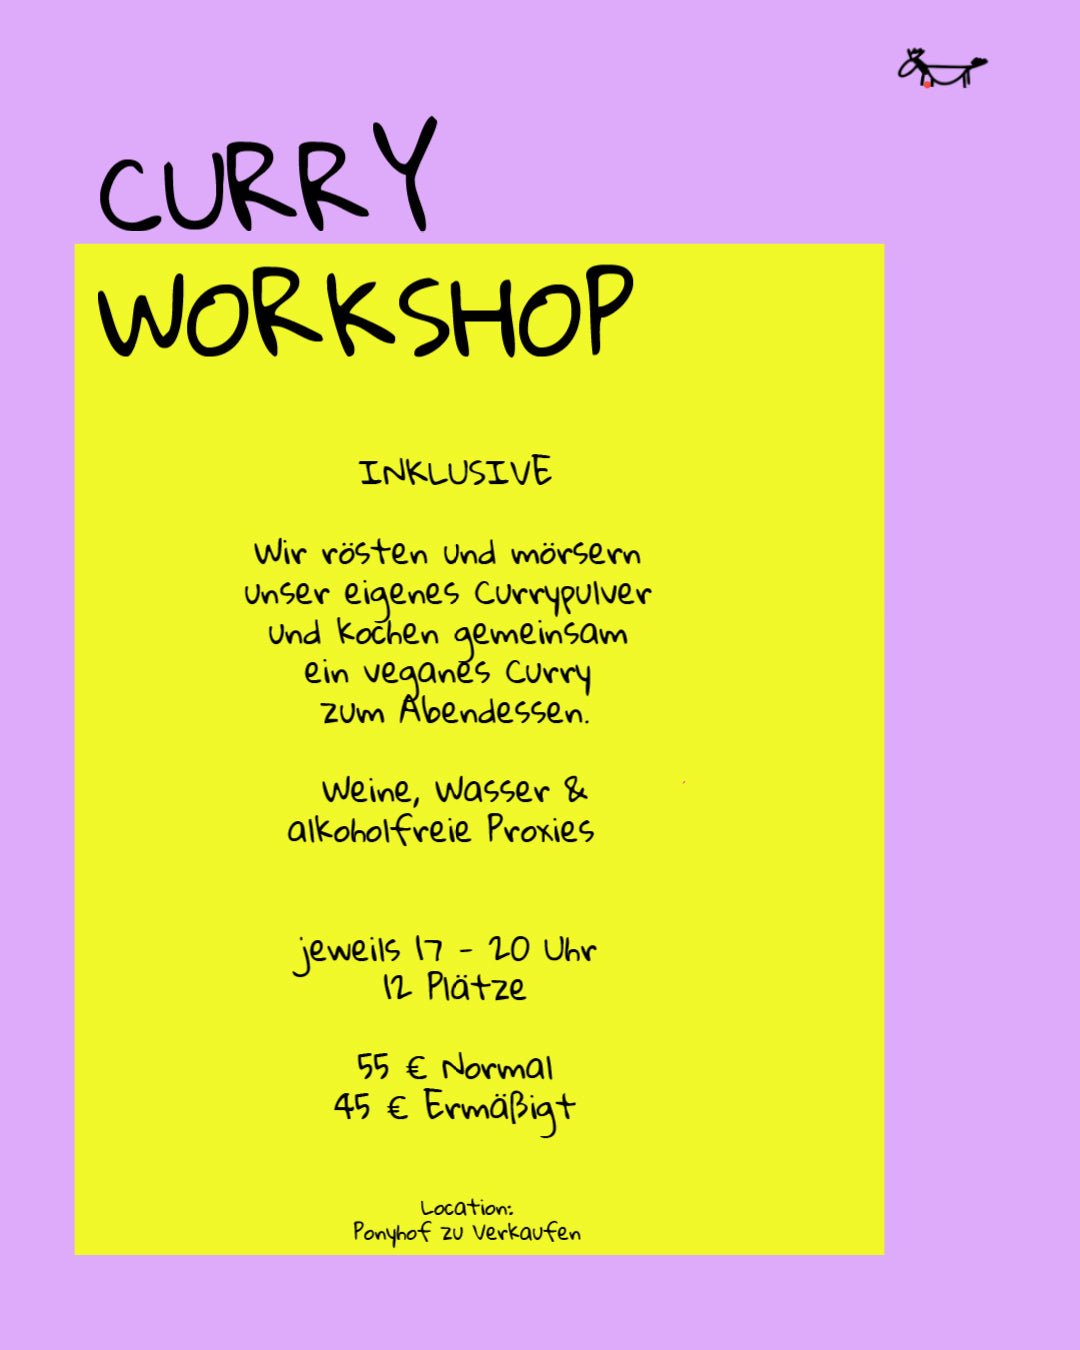 CURRY
WORKSHOP
INKLUSIVE
Wir rösten und mörsern
unser eigenes Currypulver
und kochen gemeinsam
ein veganes Curry
zum Abendessen.
Weine, Wasser &
alkoholfreie Proxies
jeweils 17 - 20 Uhr
12 Plätze
55 € Normal
45 € Ermäßigt
Location:
Ponyhof zu Verkaufen